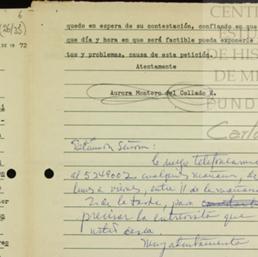 6
(26/35)
DE 19 72
quedo en espera de su contestación, confiando en que
que día y hora en que será factible pueda exponerle
tos y problemas, causa de esta petición.
Atentamente
Aurora Montero del Collado R.
CEN
ES
DE HIS
DE M
FUND
Carlo
Estimado Señor:
le ruego telefonearme
al 5249002 cualquier mañana, de
lunes a viernes, entre 11 de la mañana
2 de la tarde, para
precisar la entrevista que
usted desea.
Muy atentamente